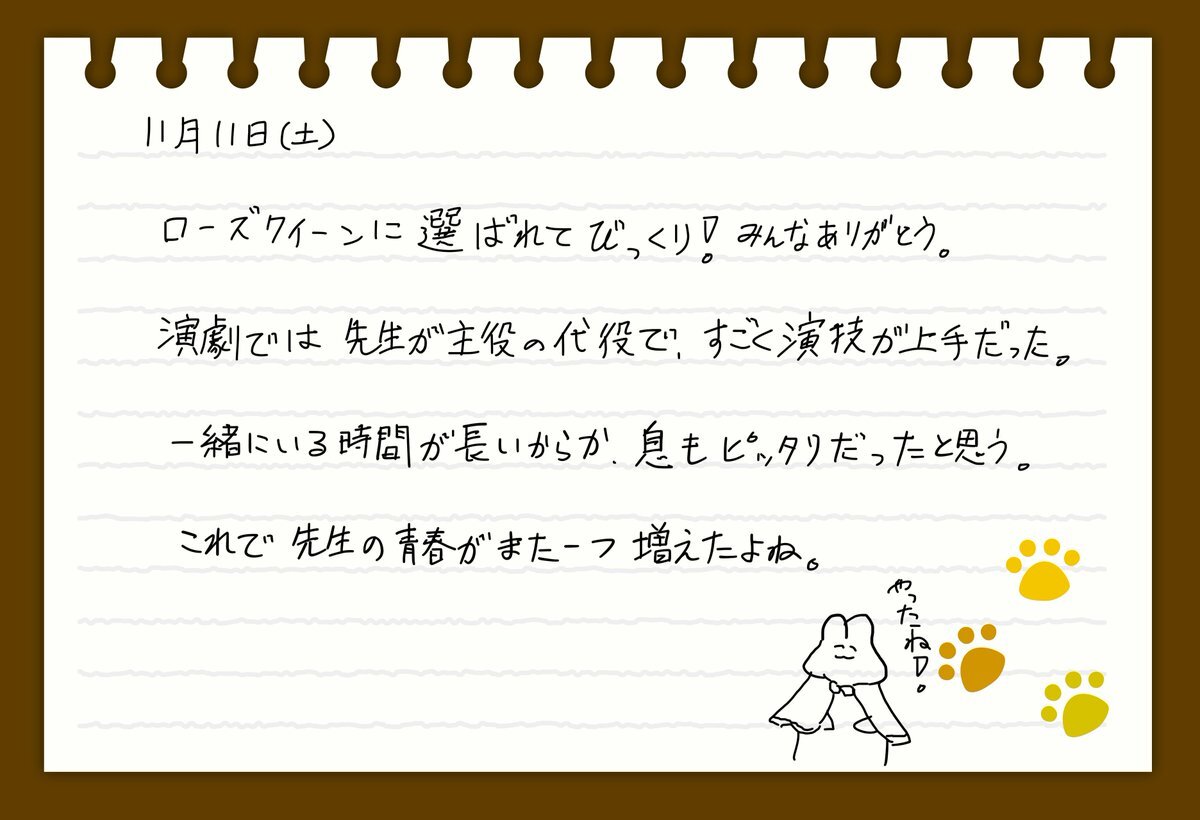 11月11日(土)
ローズクイーンに選ばれてびっくり!みんなありがとう。
演劇では先生が主役の代役で、すごく演技が上手だった。
一緒にいる時間が長いからか、息もピッタリだったと思う。
これで先生の青春がまた一つ増えたよね。
やったね!